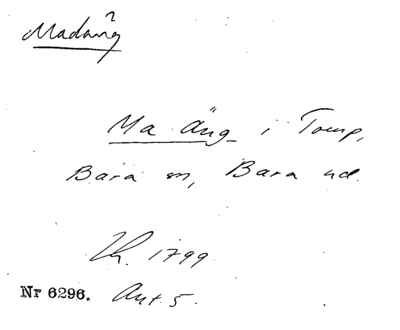 Madäng
Ma äng i Torup,
Bara sn, Bara hd.
Th. 1799
Nr 6296. Akt 5.